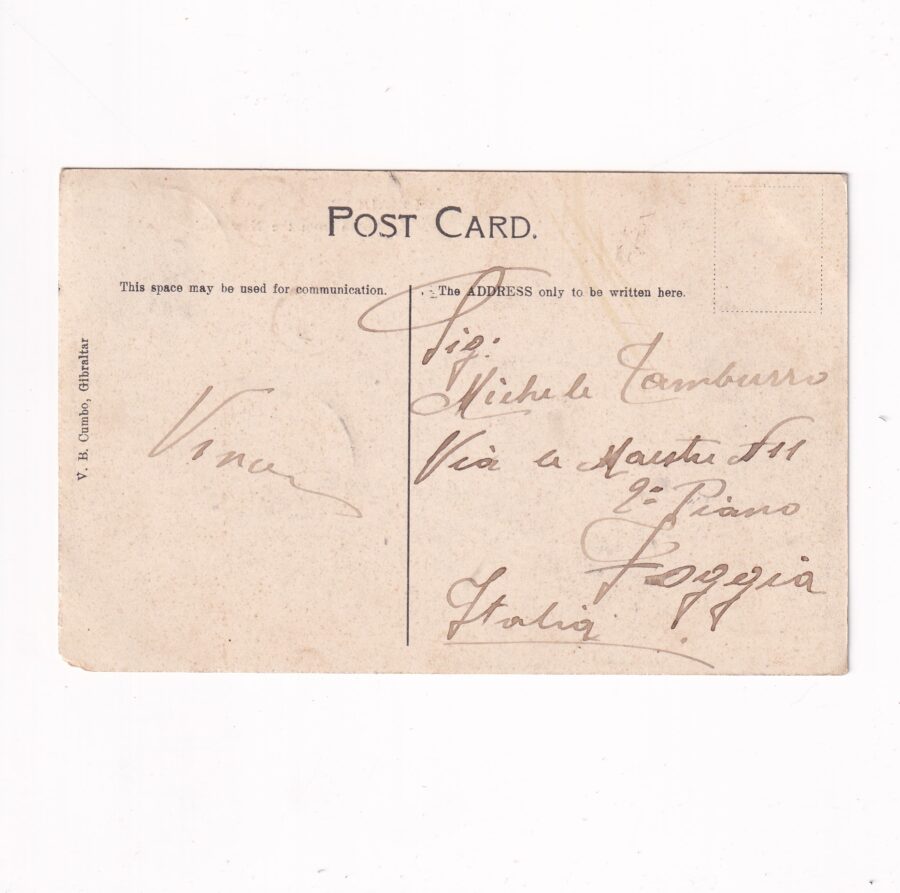 POST CARD.
This space may be used for communication.
The ADDRESS only to be written here.
V. B. Cumbo, Gibraltar
Sig:
Michele Tamburro
Via le Maestre N 11
2º Piano
Foggia
Italia